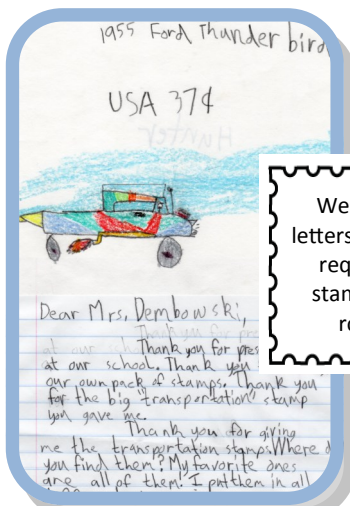 1955 Ford Thunder bird
USA 37¢
Hunter
We
letters
req
stam
re
Dear Mrs. Dembowski,
Thank you for pres
at our school. Thank you
our own pack of stamps. Thank you
for the big "transportation" stamp
you gave me.
Thank you for giving
me the transportation stamps. Where d
you find them? My favorite ones
are all of them! I put them in all